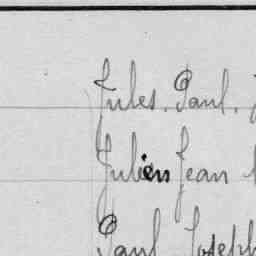 Jules. Paul.
Julien Jean
Paul Joseph